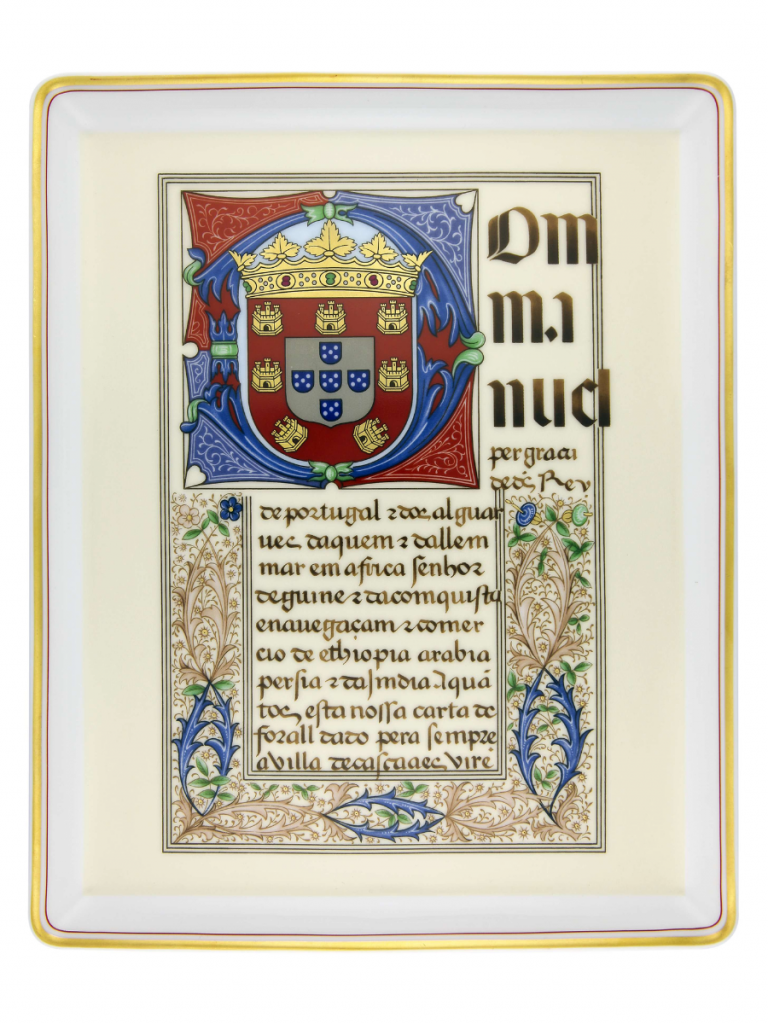 Om
m.a
nuel
per graça
de ds, Rey
de portugal ⁊ dos, algar
ues, daquem ⁊ dallem
mar em africa senhor
de guine ⁊ da comquista
e nauegaçam ⁊ comer
cio de ethiopia arabia
persia ⁊ da Imdia. A quã
tos, esta nossa carta de
forall dado pera sempre
a villa de cascaaes, vire